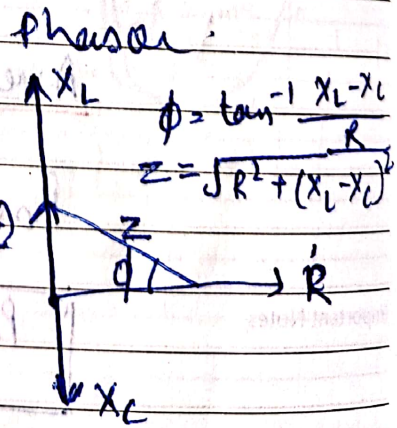 Phasor.
X_L
φ = tan⁻¹ (X_L - X_C)/R
Z = √(R² + (X_L - X_C)²)
Z
φ
R
X_C